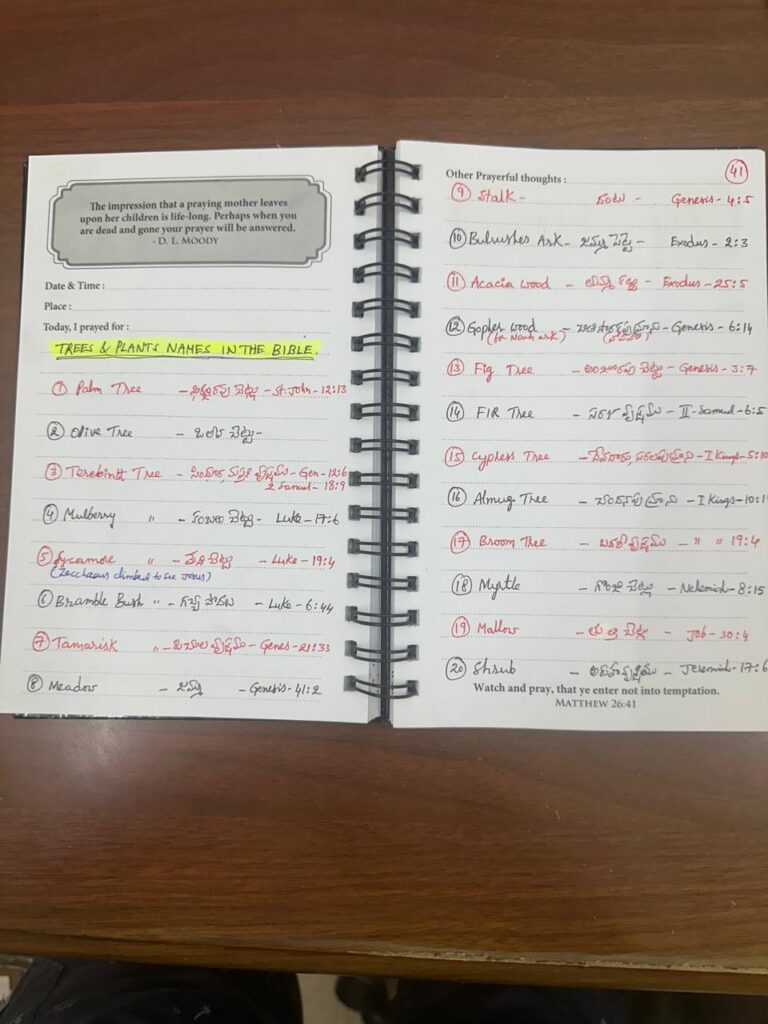 The impression that a praying mother leaves
upon her children is life-long. Perhaps when you
are dead and gone your prayer will be answered.
- D. L. MOODY
Date & Time :
Place :
Today, I prayed for :
TREES & PLANTS NAMES IN THE BIBLE.
① Palm Tree - ఖర్జూరపు చెట్టు - St. John - 12:13
② Olive Tree - ఒలీవ చెట్టు -
③ Terebinth Tree - సింధూర వృక్షము - Gen - 12:6
2 Samuel - 18:9
④ Mulberry " - కంబలి చెట్టు - Luke - 17:6
⑤ Sycamore " - మేడి చెట్టు - Luke - 19:4
(Zacchaeus climbed to see Jesus)
⑥ Bramble Bush " - - Luke - 6:44
⑦ Tamarisk " - పిచుల వృక్షము - Genes - 21:33
⑧ Meadow - జమ్ము - Genesis - 41:2
Other Prayerful thoughts :
41
⑨ Stalk - దంటు - Genesis - 4:5
⑩ Bulrushes Ark - జమ్ము పెట్టె - Exodus - 2:3
⑪ Acacia wood - తుమ్మ కఱ్ఱ - Exodus - 25:5
⑫ Gopher wood - - Genesis - 6:14
(for Noah ark)
⑬ Fig Tree - అంజూరపు చెట్టు - Genesis - 3:7
⑭ FIR Tree - సరళ వృక్షము - II - Samuel - 6:5
⑮ Cyphers Tree - - I Kings - 5:10
⑯ Almug Tree - చందనపు మ్రాను - I Kings - 10:11
⑰ Broom Tree - బదరీ వృక్షము - " " 19:4
⑱ Myrtle - గొంజి చెట్లు - Nehemiah - 8:15
⑲ Mallow - - Job - 30:4
⑳ Shrub - అరుహా వృక్షము - Jeremiah - 17:6
Watch and pray, that ye enter not into temptation.
MATTHEW 26:41